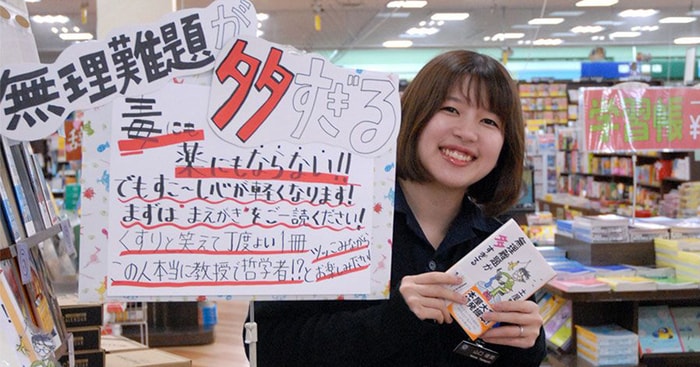 無理難題が
多すぎる
毒にも
薬にもならない!!
でもすこ〜し心が軽くなります!
まずは まえがき をご一読ください!
くすりと笑えて丁度よい1冊 ツッこみながら
この人本当に教授で哲学者!?とお楽しみ下さい
無理難題が
多すぎる
土屋
学習